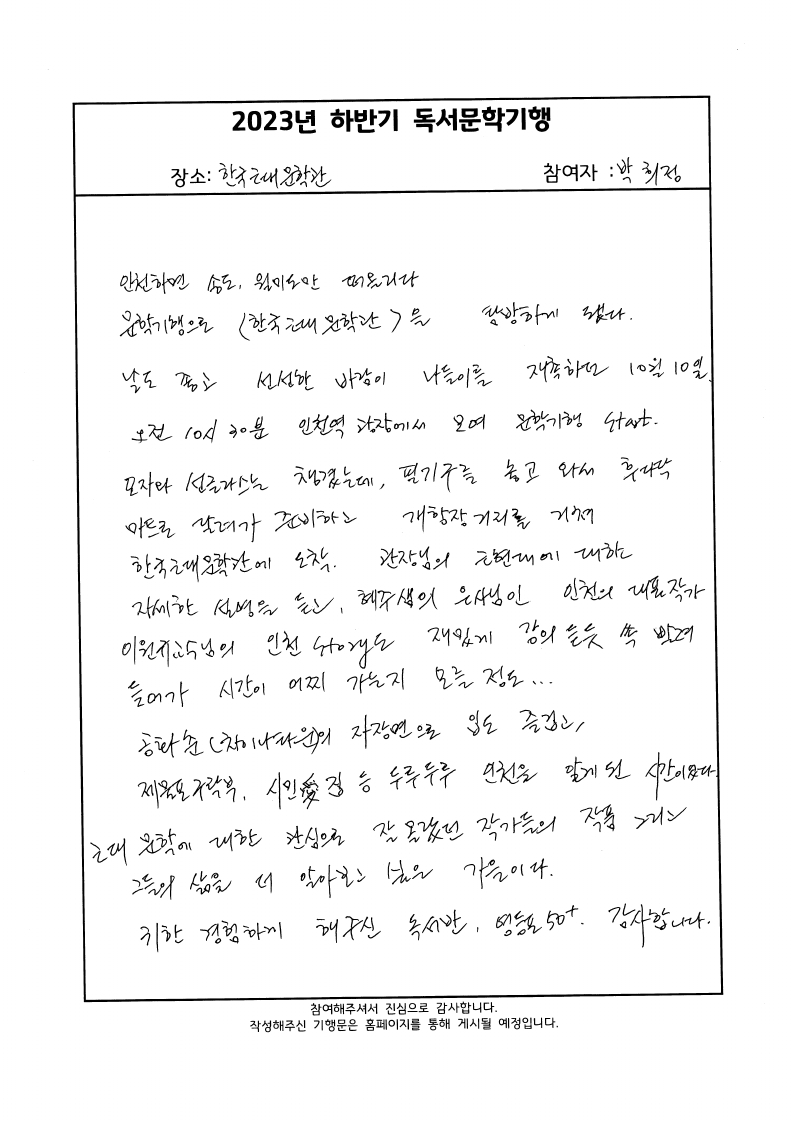 2023년 하반기 독서문학기행
장소: 한국근대문학관
참여자 : 박희정
인천하면 송도, 월미도만 떠올리다
문학기행으로 <한국근대문학관>을 탐방하게 됐다.
날도 좋고 선선한 바람이 나들이를 재촉하던 10월 10일.
오전 10시 30분 인천역 광장에서 모여 문학기행 start.
모자와 선글라스는 챙겼는데, 필기구를 놓고 와서 후다닥
마트로 달려가 준비하고 개항장거리를 거쳐
한국근대문학관에 도착. 관장님의 근현대에 대하는
자세한 설명을 듣고, 혜주샘의 은사님인 인천의 대표작가
교수님의 인천 story도 재밌게 강의 듣듯 쏙 빨려
들어가 시간이 어찌 가는지 모를 정도...
공화춘(차이나타운)의 자장면으로 입도 즐겁고,
제물포구락부, 시인愛집 등 두루두루 인천을 알게 된 시간이었다
근대 문학에 대한 관심으로 잘 몰랐던 작가들의 작품 그리고
그들의 삶을 더 알아보고 싶은 가을이다.
귀한 경험하게 해주신 독서반, 영등포50+. 감사합니다.
참여해주셔서 진심으로 감사합니다.
작성해주신 기행문은 홈페이지를 통해 게시될 예정입니다.